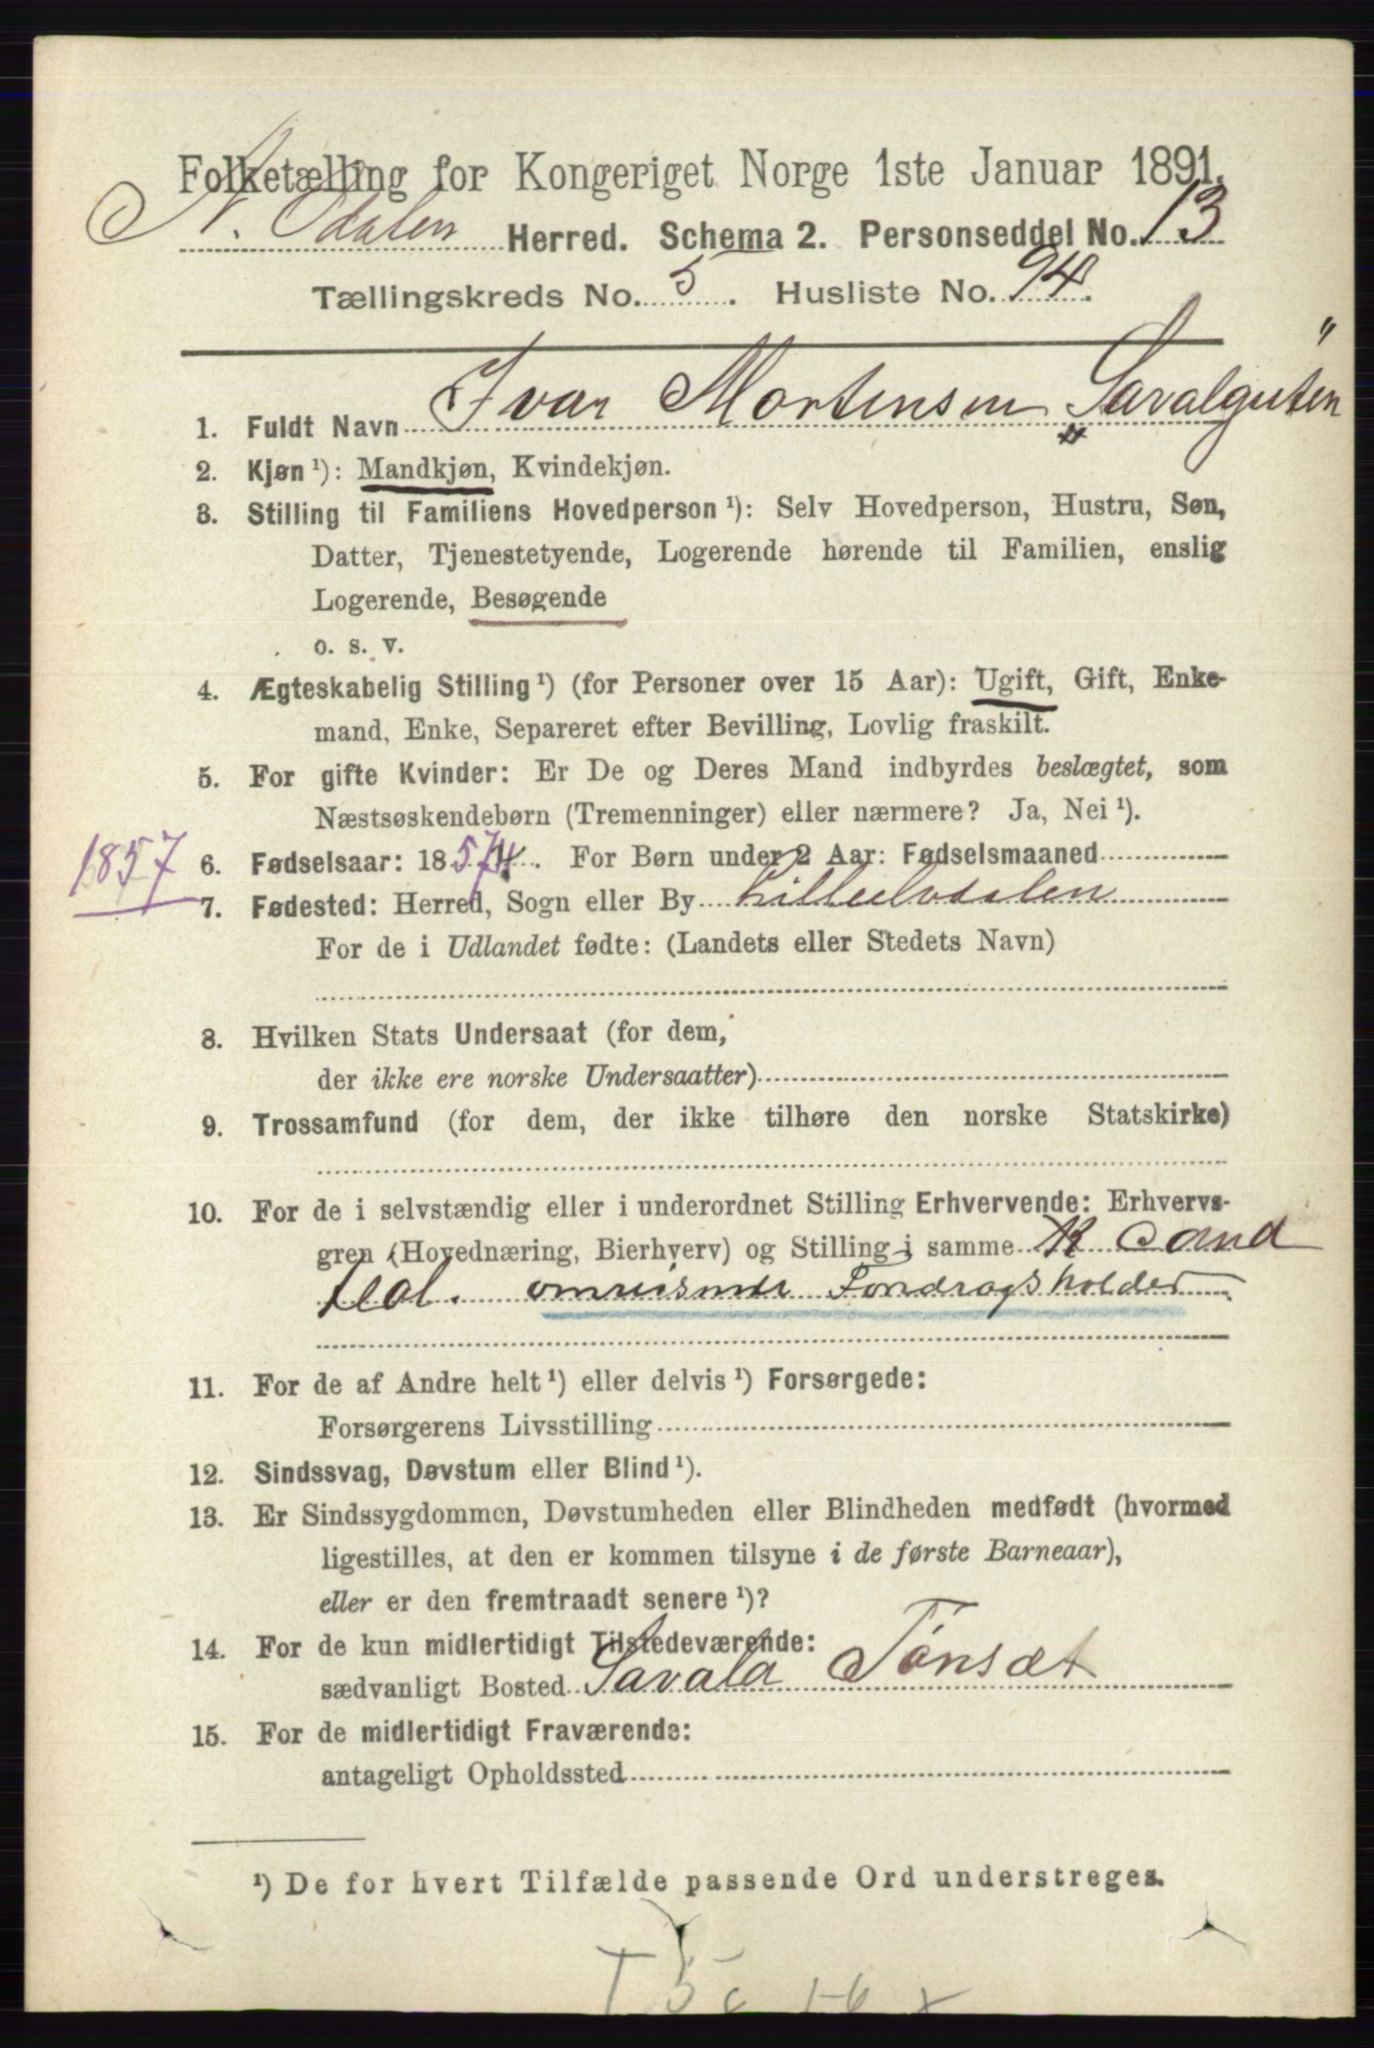 Folketælling for Kongeriget Norge 1ste Januar 1891.
N. Odalen Herred. Schema 2. Personseddel No. 13
Tællingskreds No. 5. Husliste No. 94.
1. Fuldt Navn Ivar Mortensen „Savalguten"
2. Kjøn ¹): Mandkjøn, Kvindekjøn.
3. Stilling til Familiens Hovedperson ¹): Selv Hovedperson, Hustru, Søn,
Datter, Tjenestetyende, Logerende hørende til Familien, enslig
Logerende, Besøgende
o. s. v.
4. Ægteskabelig Stilling ¹) (for Personer over 15 Aar): Ugift, Gift, Enke-
mand, Enke, Separeret efter Bevilling, Lovlig fraskilt.
5. For gifte Kvinder: Er De og Deres Mand indbyrdes beslægtet, som
Næstsøskendebørn (Tremenninger) eller nærmere? Ja, Nei ¹).
1857
6. Fødselsaar: 1857. For Børn under 2 Aar: Fødselsmaaned
7. Fødested: Herred, Sogn eller By Lilleelvdalen
For de i Udlandet fødte: (Landets eller Stedets Navn)
8. Hvilken Stats Undersaat (for dem,
der ikke ere norske Undersaatter)
9. Trossamfund (for dem, der ikke tilhøre den norske Statskirke)
10. For de i selvstændig eller i underordnet Stilling Erhvervende: Erhvervs-
gren (Hovednæring, Bierhverv) og Stilling i samme Cand
omreisende Fordragsholder
11. For de af Andre helt ¹) eller delvis ¹) Forsørgede:
Forsørgerens Livsstilling
12. Sindssvag, Døvstum eller Blind ¹).
13. Er Sindssygdommen, Døvstumheden eller Blindheden medfødt (hvormed
ligestilles, at den er kommen tilsyne i de første Barneaar),
eller er den fremtraadt senere ¹)?
14. For de kun midlertidigt Tilstedeværende:
sædvanligt Bosted Savala Tønsæt
15. For de midlertidigt Fraværende:
antageligt Opholdssted
¹) De for hvert Tilfælde passende Ord understreges.